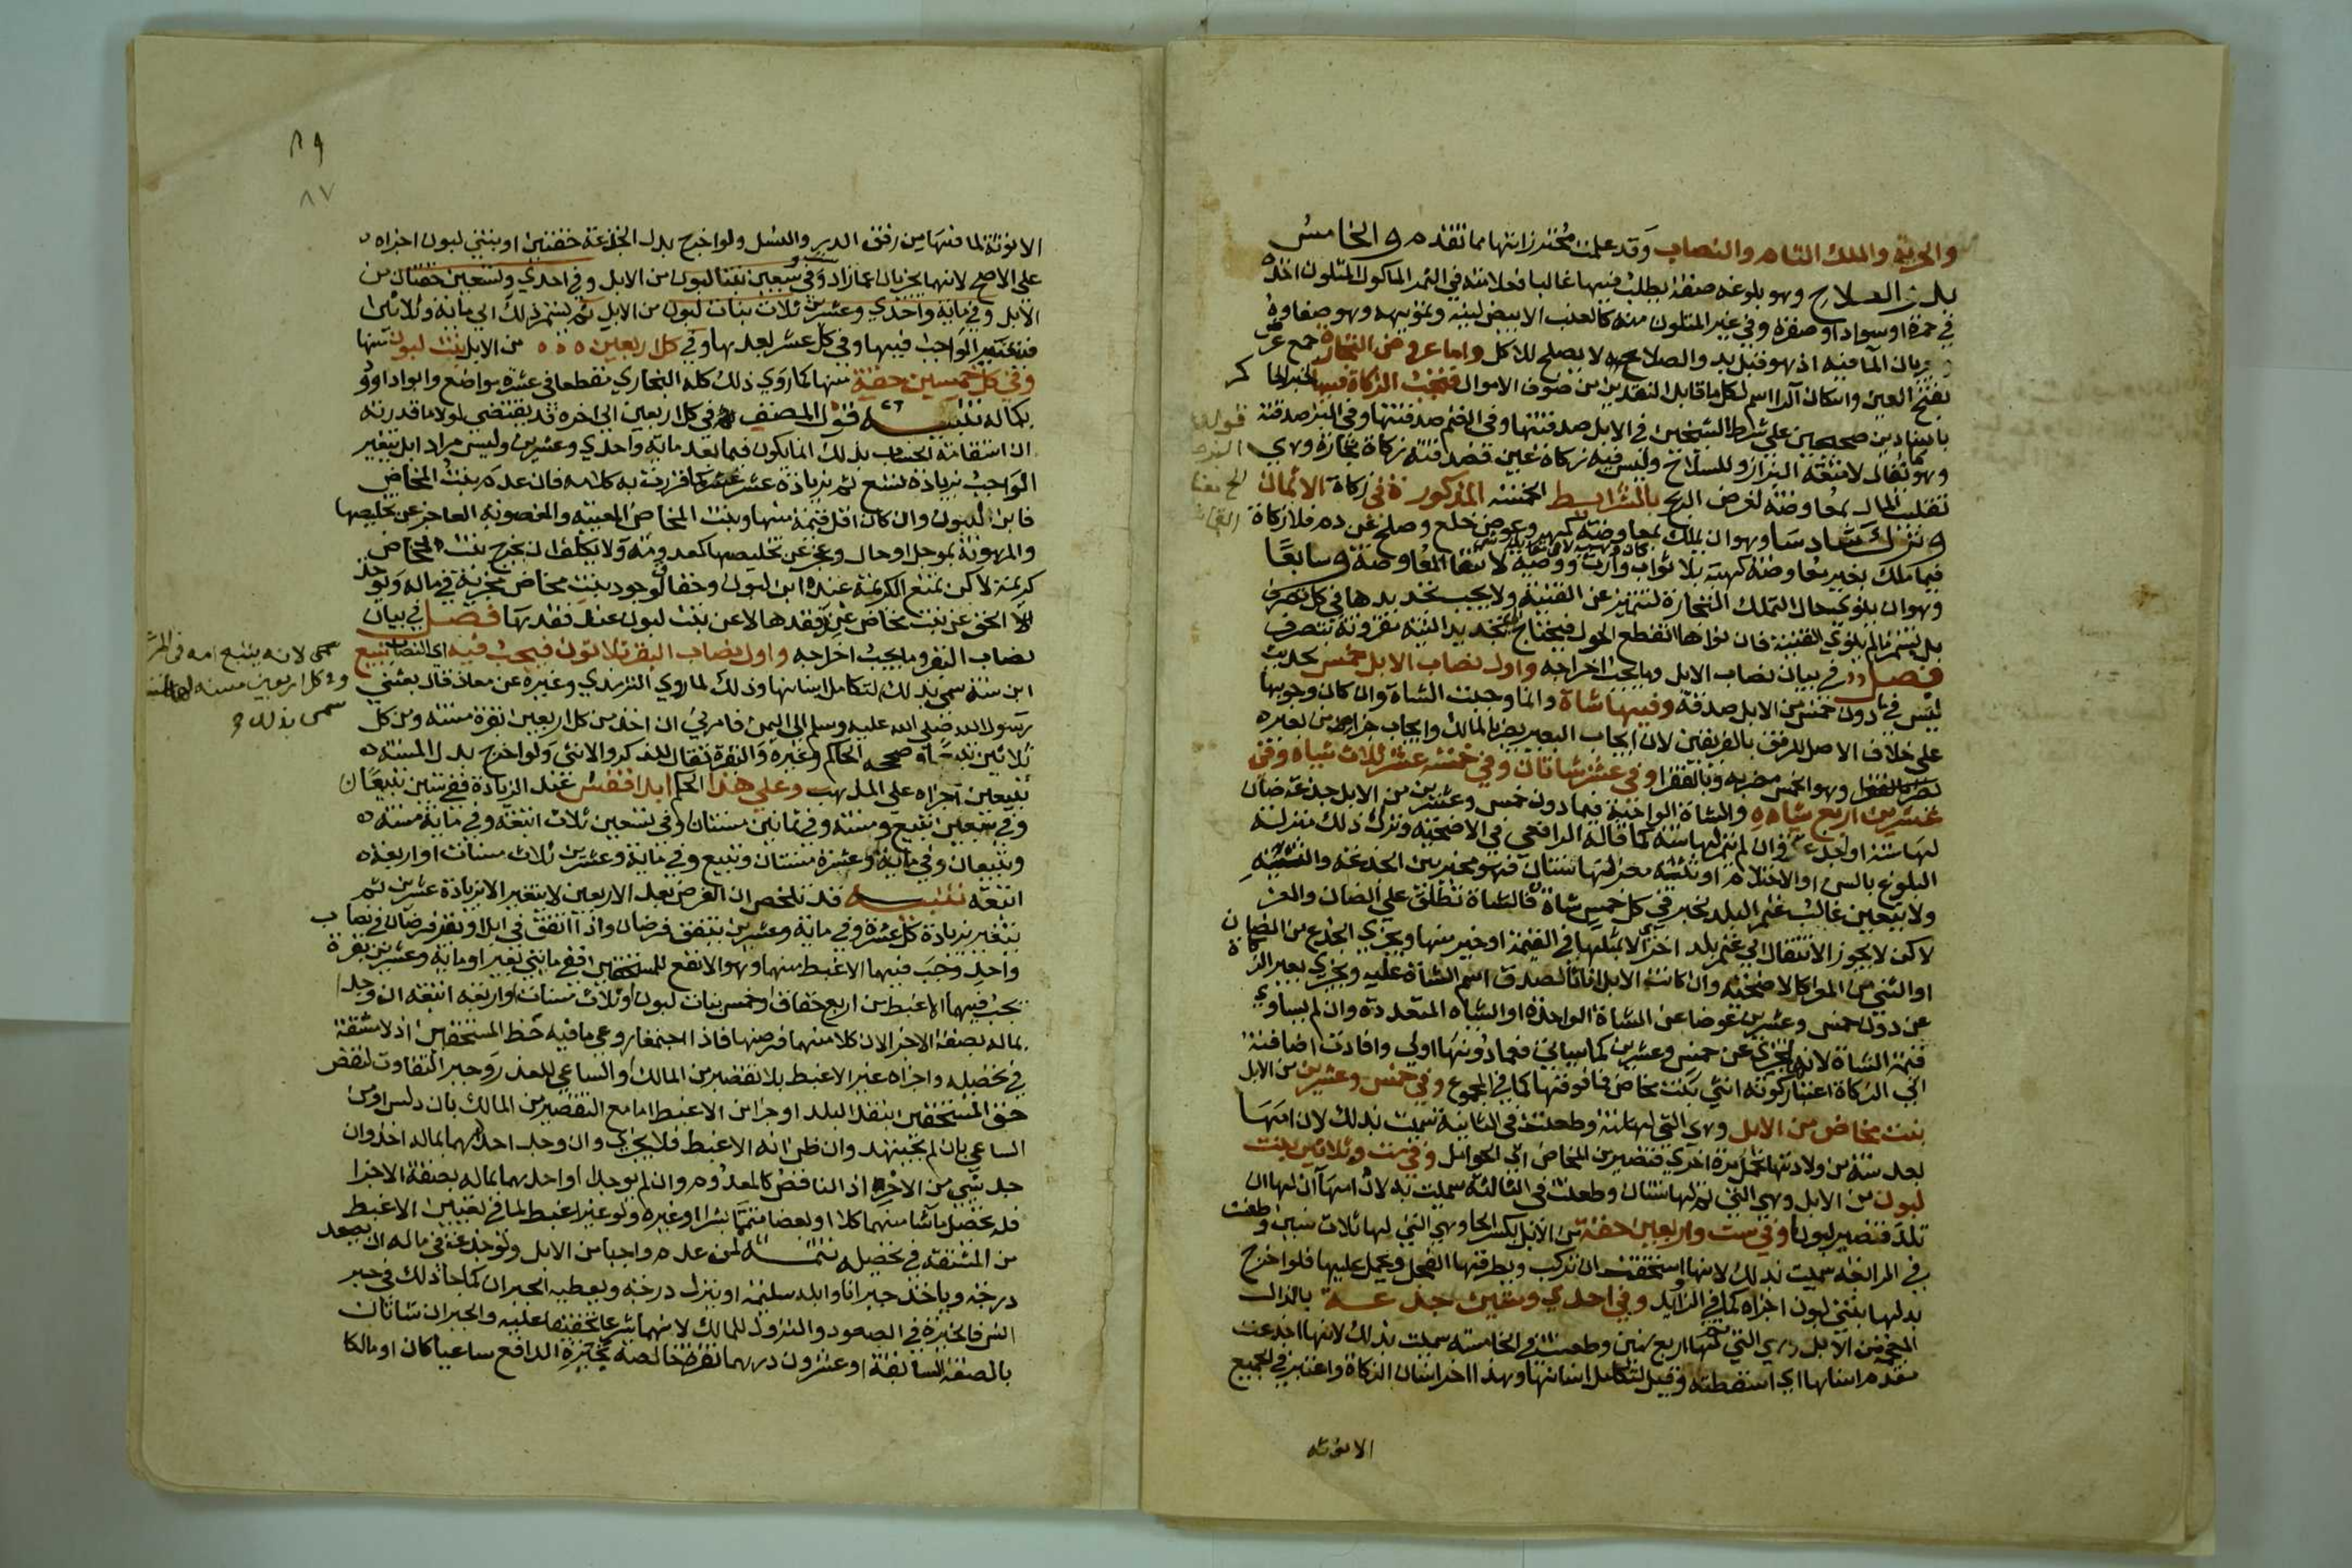 والحرية والملك التام والنصاب وقد علمت محترزاتها مما تقدم و الخامس
بدو الصلاح وهو بلوغه صفة يطلب فيها غالبا فعلامته في الثمر الماكول المتلون اخذه
في حمرة او سواد او صفرة وفي غير المتلون منه كالعنب الابيض لينه وتمويهه وهو صفاوه
وجريان الما فيه اذ هو قبل بدو الصلاح لا يصلح للاكل واما عروض التجارة جمع عرض
بفتح العين واسكان الرا اسم لكل ما قابل النقدين من صنوف الاموال فتجب الزكاة فيها لخبر الحاكم
باسنادين صحيحين على شرط الشيخين في الابل صدقتها وفي الغنم صدقتها وفي البز صدقته
وهو يقال لامتعة البزاز وللسلاح وليس فيه زكاة عين فصدقته زكاة تجارة وهي
تقليب المال بمعاوضة لغرض الربح بالشرايط الخمسة المذكورة في زكاة الاثمان
وترك سادسا وهو ان يملك بمعاوضة كمهر وعوض خلع وصلح عن دم فلا زكاة
فيما ملك بغير معاوضة كهبة بلا ثواب وارث ووصية لانتفا المعاوضة وسابعا
وهو ان ينوي حال التملك التجارة لتتميز عن القنية ولا يجب تجديدها في كل تصرف
بل يستمر مالم ينوي القنية فان نواها انقطع الحول فيحتاج الى تجديد النية مقرونة بتصرف
فصل في بيان نصاب الابل وما يجب اخراجه واول نصاب الابل خمس لحديث
ليس في ما دون خمس من الابل صدقة وفيها شاة وانما وجبت الشاة وان كان وجوبها
على خلاف الاصل للرفق بالفريقين لان ايجاب البعير يضر بالمالك وايجاب جزء من بعير
وهو الخمس مضر به وبالفقرا وفي عشر شاتان وفي خمسة عشر ثلاث شياه وفي
عشرين اربع شياه والشاة الواجبة فيما دون خمس وعشرين من الابل جذعة ضان
لها سنة او اجذعت وان لم يتم لها سنة كما قاله الرافعي في الاضحية ونزل ذلك منزلة
البلوغ بالسن او الاحتلام او ثنية معز لها سنتان فهو مخير بين الجذعة والثنية
ولا يتعين غالب غنم البلد لخبر في كل خمس شاة فالشاة تطلق على الضان والمعز
لاكن لا يجوز الانتقال الى غنم بلد اخر الا بمثلها في القيمة او خير منها ويجزي الجذع من الضان
او الثني من المعز كالاضحية وان كانت الابل اناثا لصدق اسم الشاة عليه ويجزي بعير الزكاة
عن دون خمس وعشرين عوضا عن الشاة الواحدة او الشياه المتعددة وان لم يساوي
قيمة الشاة لانه يجزي عن خمس وعشرين كما سياتي فعما دونها اولى وافادت اضافته
الى الزكاة اعتبار كونه انثى بنت مخاض فما فوقها كما في المجموع وفي خمس وعشرين من الابل
بنت مخاض من الابل وهي التي لها سنة وطعنت في الثانية سميت بذلك لان امها
بعد سنة من ولادتها تحمل مرة اخرى فتصير من المخاض اي الحوامل وفي ست وثلاثين بنت
لبون من الابل وهي التي تم لها سنتان وطعنت في الثالثة سميت به لان امها آن لها ان
تلد فتصير لبونا وفي ست واربعين حقة من الابل بكسر الحا وهي التي لها ثلاث سنين وطعنت
في الرابعة سميت بذلك لانها استحقت ان تركب ويطرقها الفحل ويحمل عليها فلو اخرج
بدلها بنتي لبون اجزاه كما في الزوايد وفي احدي وستين جذعة بالذال
المعجمة من الابل وهي التي تم لها اربع سنين وطعنت في الخامسة سميت بذلك لانها اجذعت
مقدم اسنانها اي اسقطته وقيل لتكامل اسنانها وهذا اخر اسنان الزكاة واعتبر في الجميع
الانوثة
٨٩
٨٧
الانوثة لما فيها من رفق الدر والنسل ولو اخرج بدل الجذعة حقتين او بنتي لبون اجزاه
على الاصح لانهما يجزيان عما زاد وفي ست وسبعين بنتا لبون من الابل وفي احدي وتسعين حقتان من
الابل وفي ماية واحدي وعشرين ثلاث بنات لبون من الابل ثم يستمر ذلك الى ماية وثلاثين
فيتغير الواجب فيها وفي كل عشر بعدها وفي كل اربعين من الابل بنت لبون منها
وفي كل خمسين حقة منها لما روي ذلك كله البخاري مقطعا في عشرة مواضع وابو داود
بكماله تنبيه قول المصنف ثم في كل اربعين الى اخره قد يقتضي لولا ما قدرته
ان استقامة الحساب بذلك انما يكون فيما بعد ماية واحدي وعشرين وليس مرادا بل يتغير
الواجب بزيادة تسع ثم بزيادة عشر عشر كما قررت به كلامه فان عدم بنت المخاض
فابن اللبون وان كان اقل قيمة منها وبنت المخاض المعيبة والمغصوبة العاجز عن تخليصها
والمرهونة بموجل او حال وعجز عن تخليصها كمعدومة ولا يكلف ان يخرج بنت مخاض
كريمة لاكن تمنع الكريمة عنده ابن لبون وحقا لوجود بنت مخاض مجزية في ماله ويوخذ
الحق عن بنت مخاض عند فقدها لا عن بنت لبون عند فقدها فصل في بيان
نصاب البقر وما يجب اخراجه واول نصاب البقر ثلاثون فيجب فيه اي النصاب تبيع
ابن سنة سمي بذلك لتكامل اسنانها وذلك لما روي الترمذي وغيره عن معاذ قال بعثني
رسول الله صلى الله عليه وسلم الى اليمن فامرني ان اخذ من كل اربعين بقرة مسنة ومن كل
ثلاثين تبيعا وصححه الحاكم وغيره والبقرة تقال للذكر والانثى ولو اخرج بدل المسنة
تبيعين اجزاه على المذهب وعلى هذا الحكم ابدا فقس عند الزيادة ففي ستين تبيعان
وفي سبعين تبيع ومسنة وفي ثمانين مسنتان وفي تسعين ثلاث اتبعة وفي ماية مسنة
وتبيعان وفي ماية وعشرة مسنتان وتبيع وفي ماية وعشرين ثلاث مسنات او اربعة
اتبعة تنبيه قد تلخص ان الفرض بعد الاربعين لا يتغير الا بزيادة عشرين ثم
يتغير بزيادة كل عشرة وفي ماية وعشرين يتفق فرضان واذا اتفق في ابل او بقر فرضان في نصاب
واحد وجب فيهما الاغبط منهما وهو الانفع للمستحقين ففي مايتي بعير او ماية وعشرين بقرة
يجب فيهما الاغبط من اربع حقاق او خمس بنات لبون او ثلاث مسنات او اربعة اتبعة ان وجدا
بماله بصفة الاجزا لان كلا منهما فرضها فاذا اجتمعا روعي ما فيه حظ المستحقين اذ لا مشقة
في تحصيله واجزاه غير الاغبط بلا تقصير من المالك او الساعي للعذر وجبر التفاوت لنقص
حق المستحقين بنقد البلد او جزا من الاغبط اما مع التقصير من المالك بان دلس او من
الساعي بان لم يجتهد وان ظن انه الاغبط فلا يجزي وان وجد احدهما بماله اخذ وان
وجد شي من الاخر اذ الناقص كالمعدوم وان لم يوجدا او احدهما بماله بصفة الاجزا
فله تحصيل ما شا منهما كلا او بعضا متمما بشرا او غيره ولو غير اغبط لما في تعيين الاغبط
من المشقة في تحصيله تتمة لمن عدم واجبا من الابل ولو جذعة في ماله ان يصعد
درجة وياخذ جبرانا وابله سليمة او ينزل درجة ويعطيه الجبران كما جا ذلك في خبر
انس فالخيرة في الصعود والنزول للمالك لانهما شرعا تخفيفا عليه والجبران شاتان
بالصفة السابقة او عشرون درهما نقرة خالصة بخيرة الدافع ساعيا كان او مالكا
سمي لانه يتبع امه في المرعى
وفي كل اربعين مسنة لها سنتان
سمى بذلك